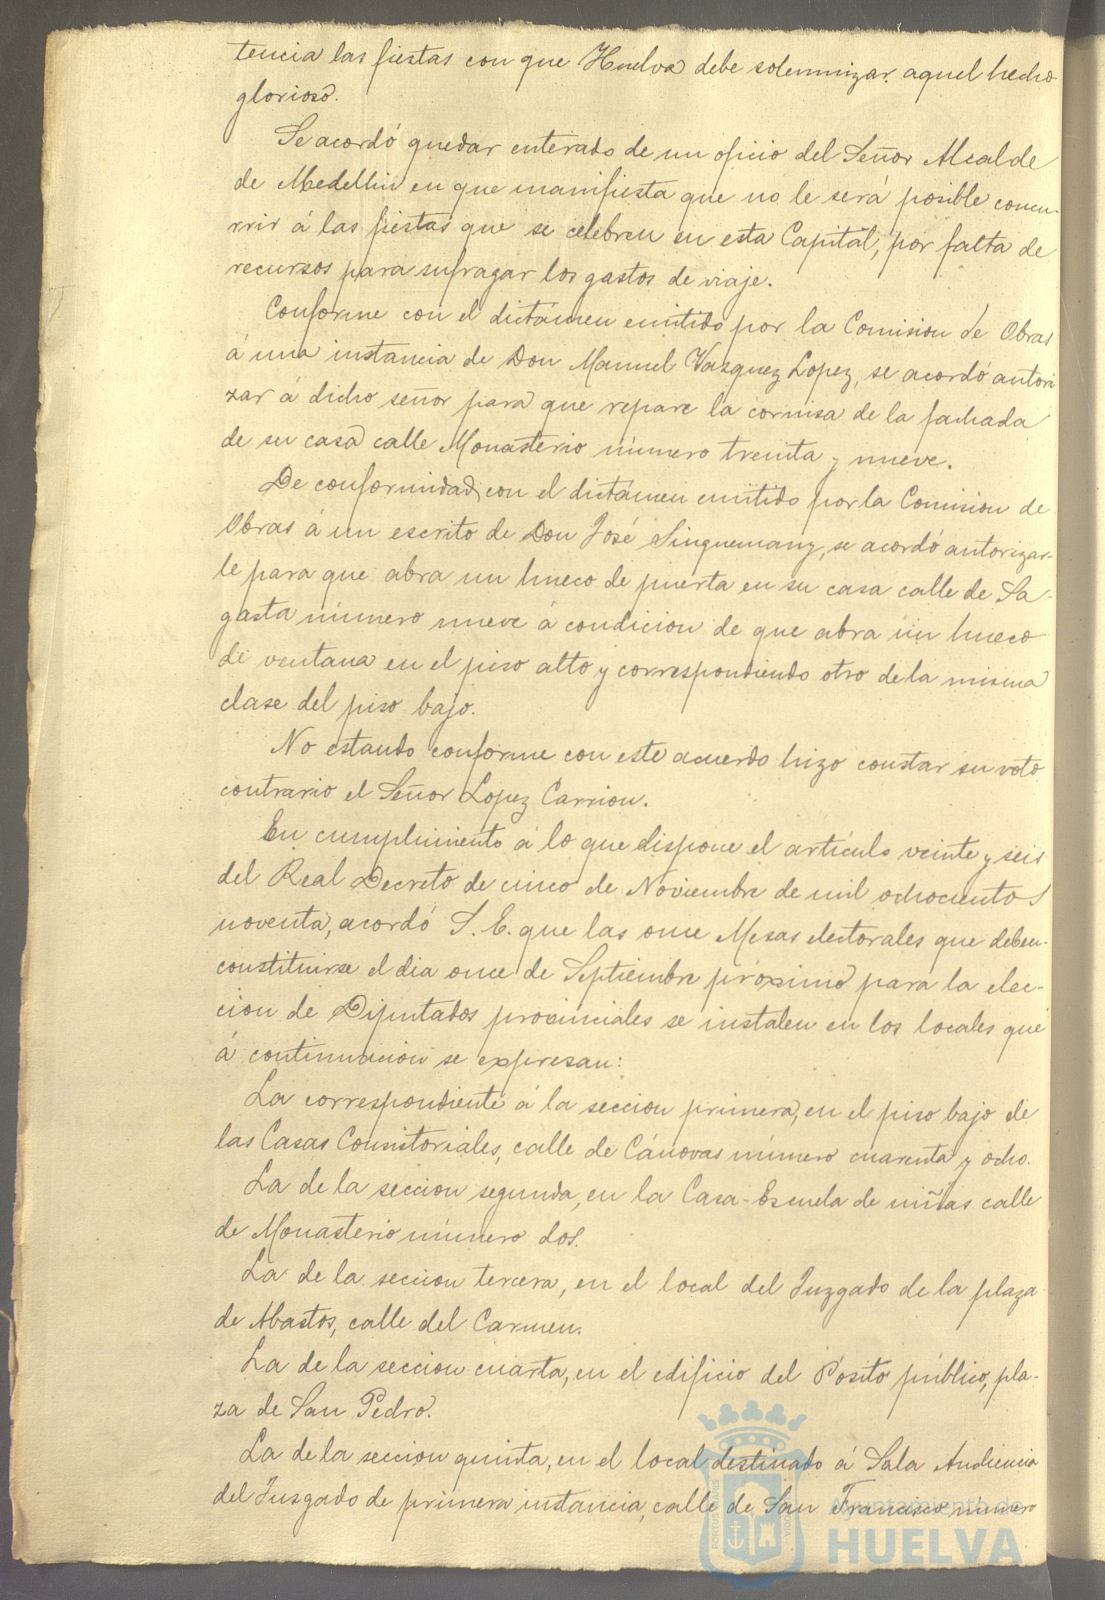 tencia las fiestas con que Huelva debe solemnizar aquel hecho
glorioso.
Se acordó quedar enterado de un oficio del Señor Alcalde
de Medellin en que manifiesta que no le será posible concu-
rrir á las fiestas que se celebren en esta Capital, por falta de
recursos para sufragar los gastos de viaje.
Conforme con el dictámen emitido por la Comision de Obras
á una instancia de Don Manuel Vazquez Lopez, se acordó autori
zar á dicho señor para que repare la cornisa de la fachada
de su casa calle Monasterio número treinta y nueve.
De conformidad con el dictámen emitido por la Comision de
Obras á un escrito de Don José Singuemany, se acordó autorizar-
le para que abra un hueco de puerta en su casa calle de Sa-
gasta número nueve á condicion de que abra un hueco
de ventana en el piso alto y correspondiendo otro de la misma
clase del piso bajo.
No estando conforme con este acuerdo hizo constar su voto
contrario el Señor Lopez Carrion.
En cumplimiento á lo que dispone el artículo veinte y seis
del Real Decreto de cinco de Noviembre de mil ochocientos
noventa, acordó S. E. que las once Mesas electorales que deben
constituirse el dia once de Septiembre próximo para la elec-
cion de Diputados provinciales se instalen en los locales que
á continuacion se expresan:
La correspondiente á la seccion primera, en el piso bajo de
las Casas Consistoriales, calle de Cánovas número cuarenta y ocho.
La de la seccion segunda, en la Casa-Escuela de niñas calle
de Monasterio número dos.
La de la seccion tercera, en el local del Juzgado de la plaza
de Abastos, calle del Carmen.
La de la seccion cuarta, en el edificio del Pósito público, pla-
za de San Pedro.
La de la seccion quinta, en el local destinado á Sala Audiencia
del Juzgado de primera instancia, calle de San Francisco número
Ayuntamiento de
HUELVA